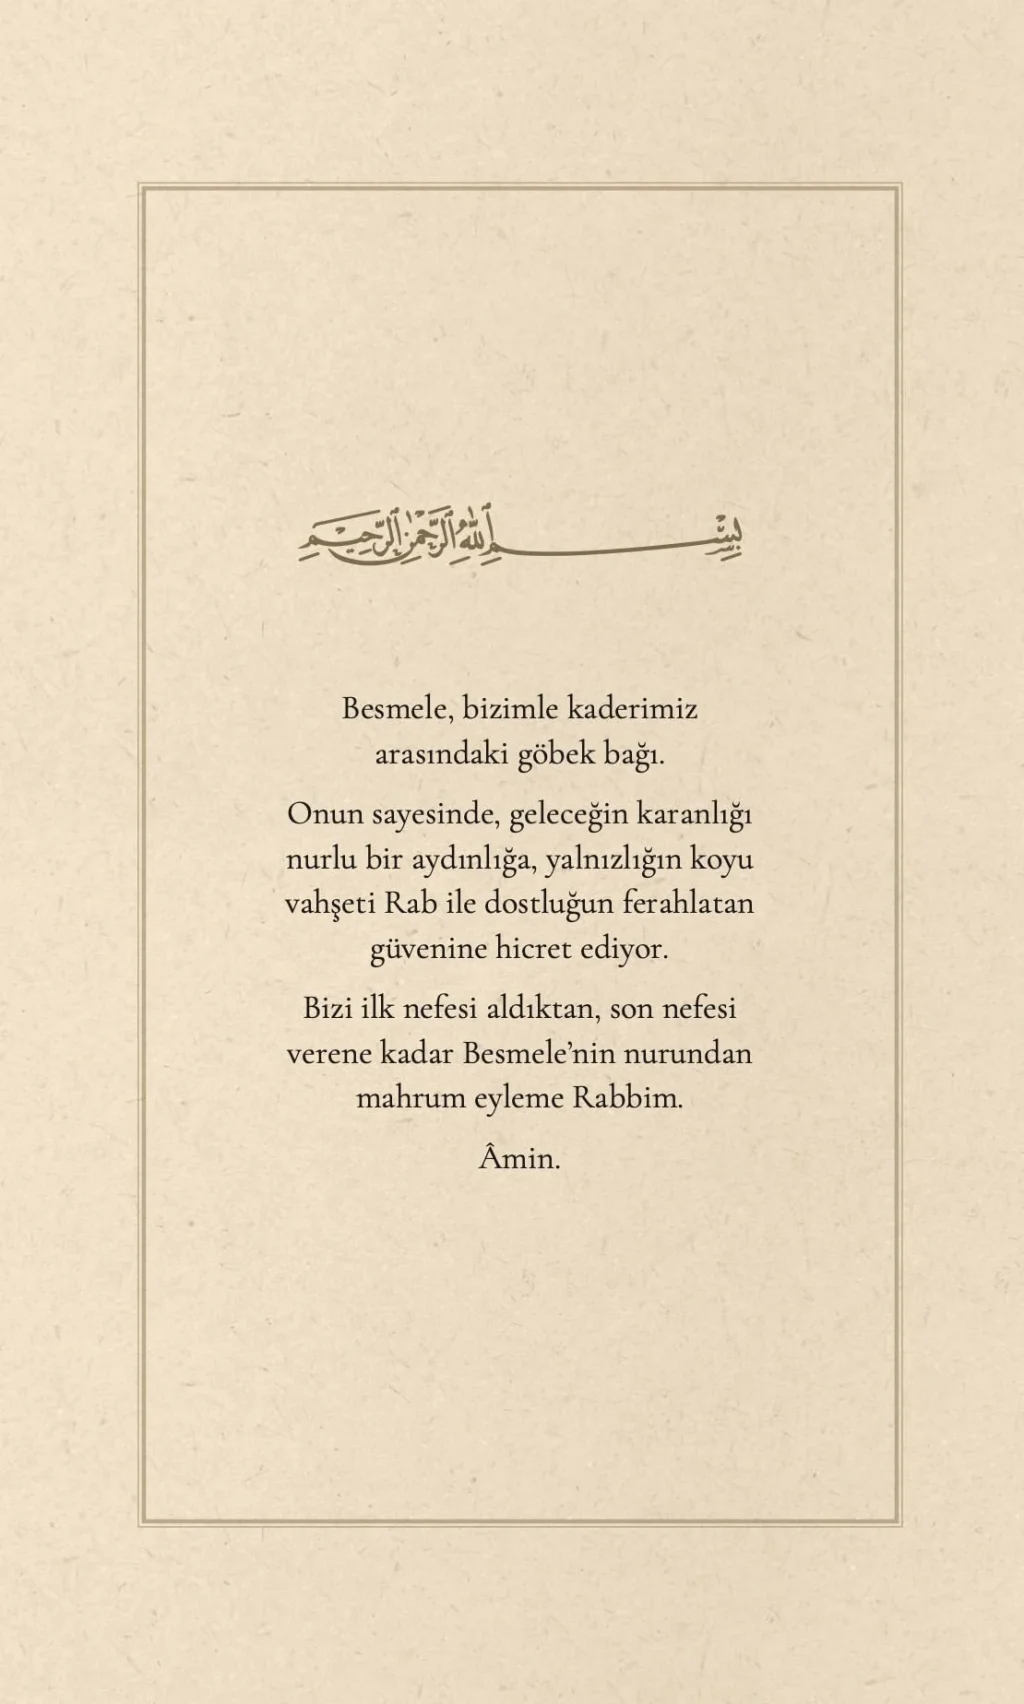 بِسْمِ ٱللَّهِ ٱلرَّحْمَٰنِ ٱلرَّحِيمِ
Besmele, bizimle kaderimiz
arasındaki göbek bağı.
Onun sayesinde, geleceğin karanlığı
nurlu bir aydınlığa, yalnızlığın koyu
vahşeti Rab ile dostluğun ferahlatan
güvenine hicret ediyor.
Bizi ilk nefesi aldıktan, son nefesi
verene kadar Besmele’nin nurundan
mahrum eyleme Rabbim.
Âmin.